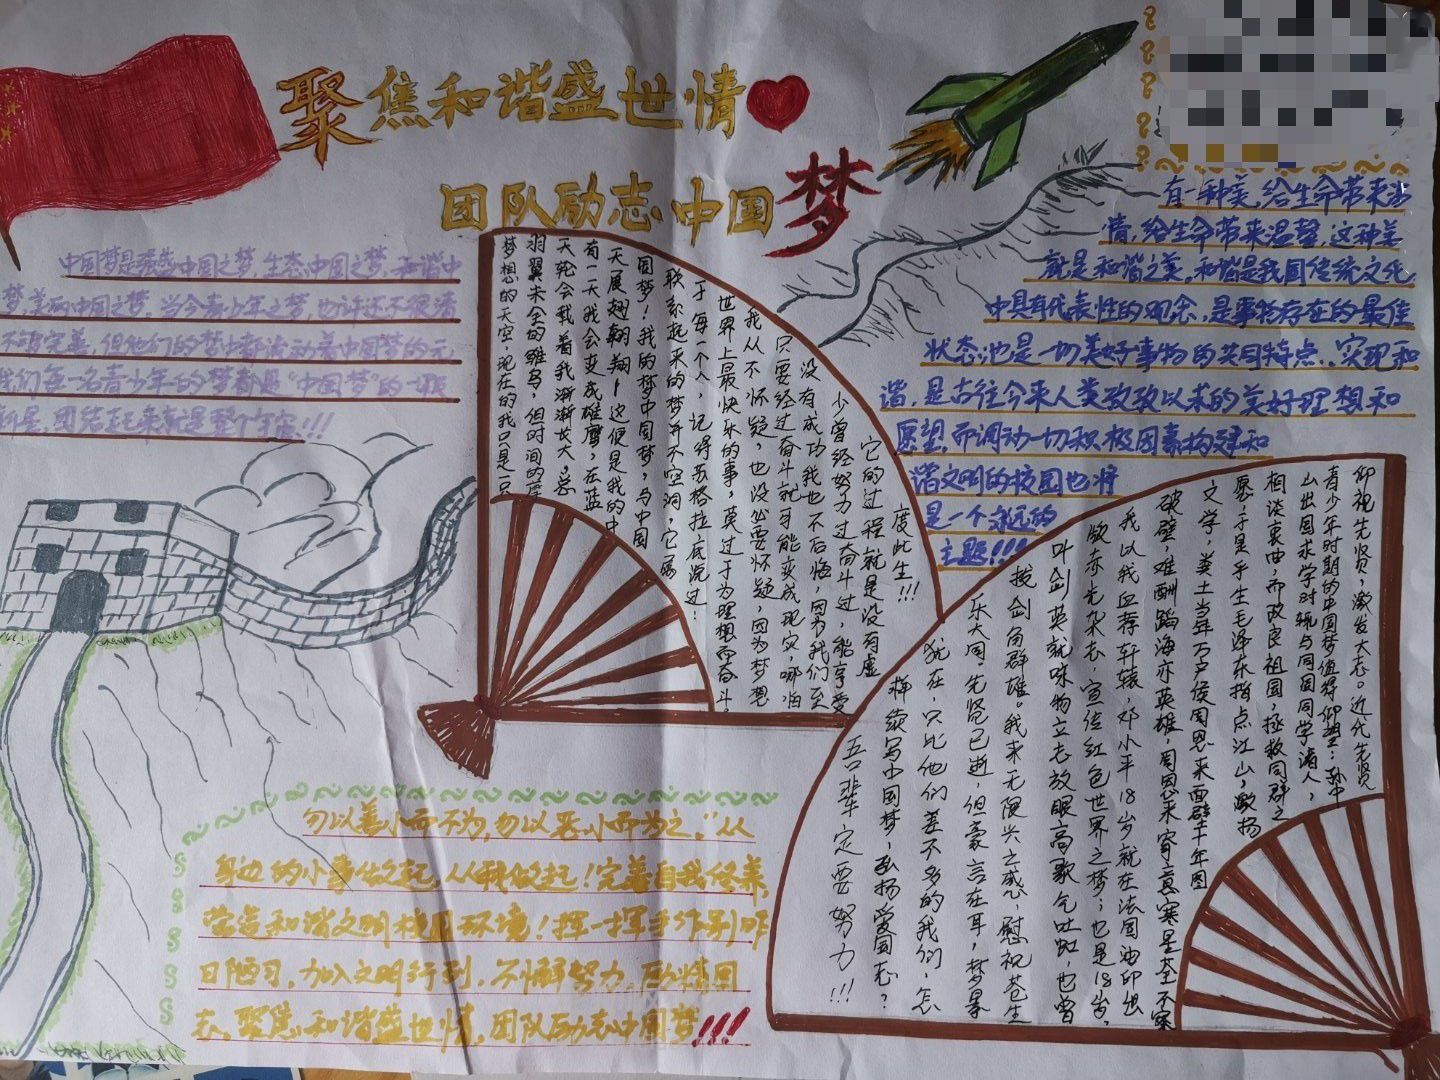 聚焦和谐盛世情
团队励志中国梦
中国梦是强盛中国之梦,生态中国之梦,和谐中
梦,美丽中国之梦。当今青少年之梦,也许还不很清
不够完善,但他们的梦中都流动着中国梦的元
我们每一名青少年的梦都是“中国梦”的一
团结起来就是整个宇宙!!!
有一种美,给生命带来
情,给生命带来温馨,这种美
就是和谐之美。和谐是我国传统文化
中具有代表性的观念,是事物存在的最佳
状态,也是一切美好事物的共同特点。实现和
谐,是古往今来人类孜孜以求的美好理想和
愿望。而调动一切积极因素构建和
谐文明的校园也将
是一个永远的
主题!!!
梦想的天空,现在的我只是一只
羽翼未全的雏鸟,但时间的摩
天轮会载着我渐渐长大,总
有一天我会变成雄鹰,在蓝
天展翅翱翔!这便是我的中
国梦!我的梦中国梦,与中国
联系起来的梦并不空洞,它
于每一个人,记得苏格拉底说过:
世界上最快乐的事,莫过于为理想而奋斗。
我从不怀疑,也没必要怀疑,因为梦想
只要经过奋斗就可能变成现实,哪怕
没有成功我也不后悔,因为我们至
少曾经努力过奋斗过,能享受
它的过程就是没有虚
度此生!!!
仰视先贤,激发大志。近代先贤
青少年时期的中国梦值得仰望:孙中
山出国求学时就与同国同学诸人,
相谈衷曲而改良祖国,拯救同群之
愿,于是乎生毛泽东指点江山,激扬
文字,粪土当年万户侯周恩来面壁十年图
破壁,难酬蹈海亦英雄,
我以我血荐轩辕,邓小平18岁就在法国油印出
版赤光杂志,宣传红色世界之梦;也是18岁,
叶剑英就咏物立志放眼高歌气吐虹,也曾
拔剑角群雄。我来无限兴之感,慰祝苍生
乐大同。先贤已逝,但豪言在耳,梦景
犹在,只比他们差不多的我们,怎
样续写中国梦,弘扬爱国志?
吾辈定要努力!!!
勿以善小而不为,勿以恶小而为之,”从
身边的小事做起,从我做起!完善自我修养,
营造和谐文明校园环境!挥一挥手作别昨
日陋习,加入文明行列,不懈努力,励精图
志、聚焦和谐盛世情,团队励志中国梦!!!